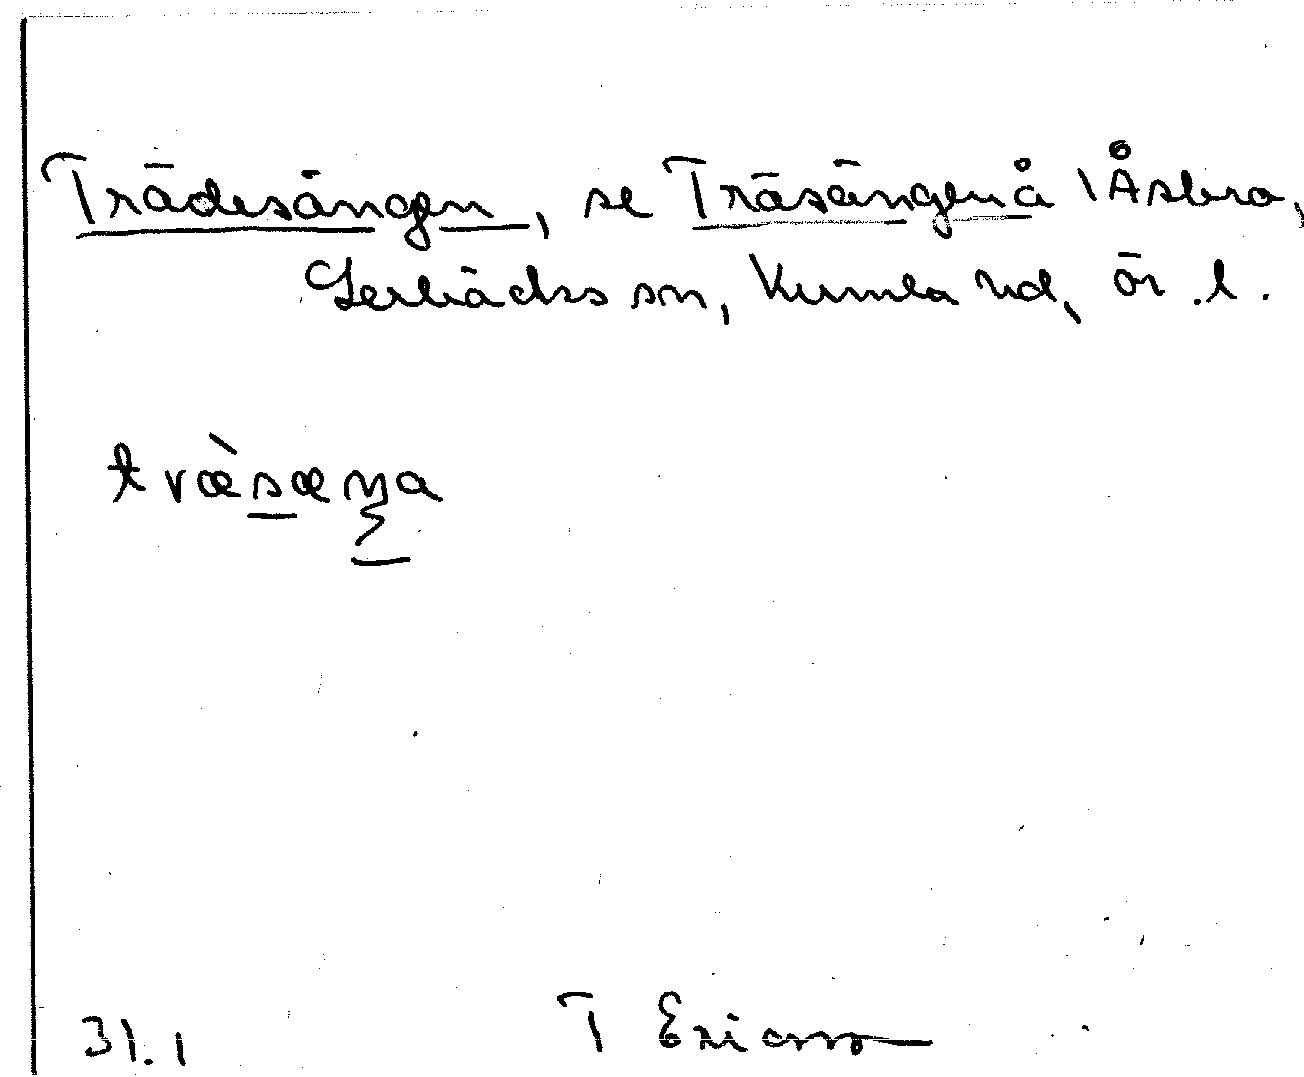 Trädesängen, se Träsängen å \Åsbro,
Lerbäcks sn, Kumla hd, ör.l.
træ̀sæŋa
31.1 T Ericsson